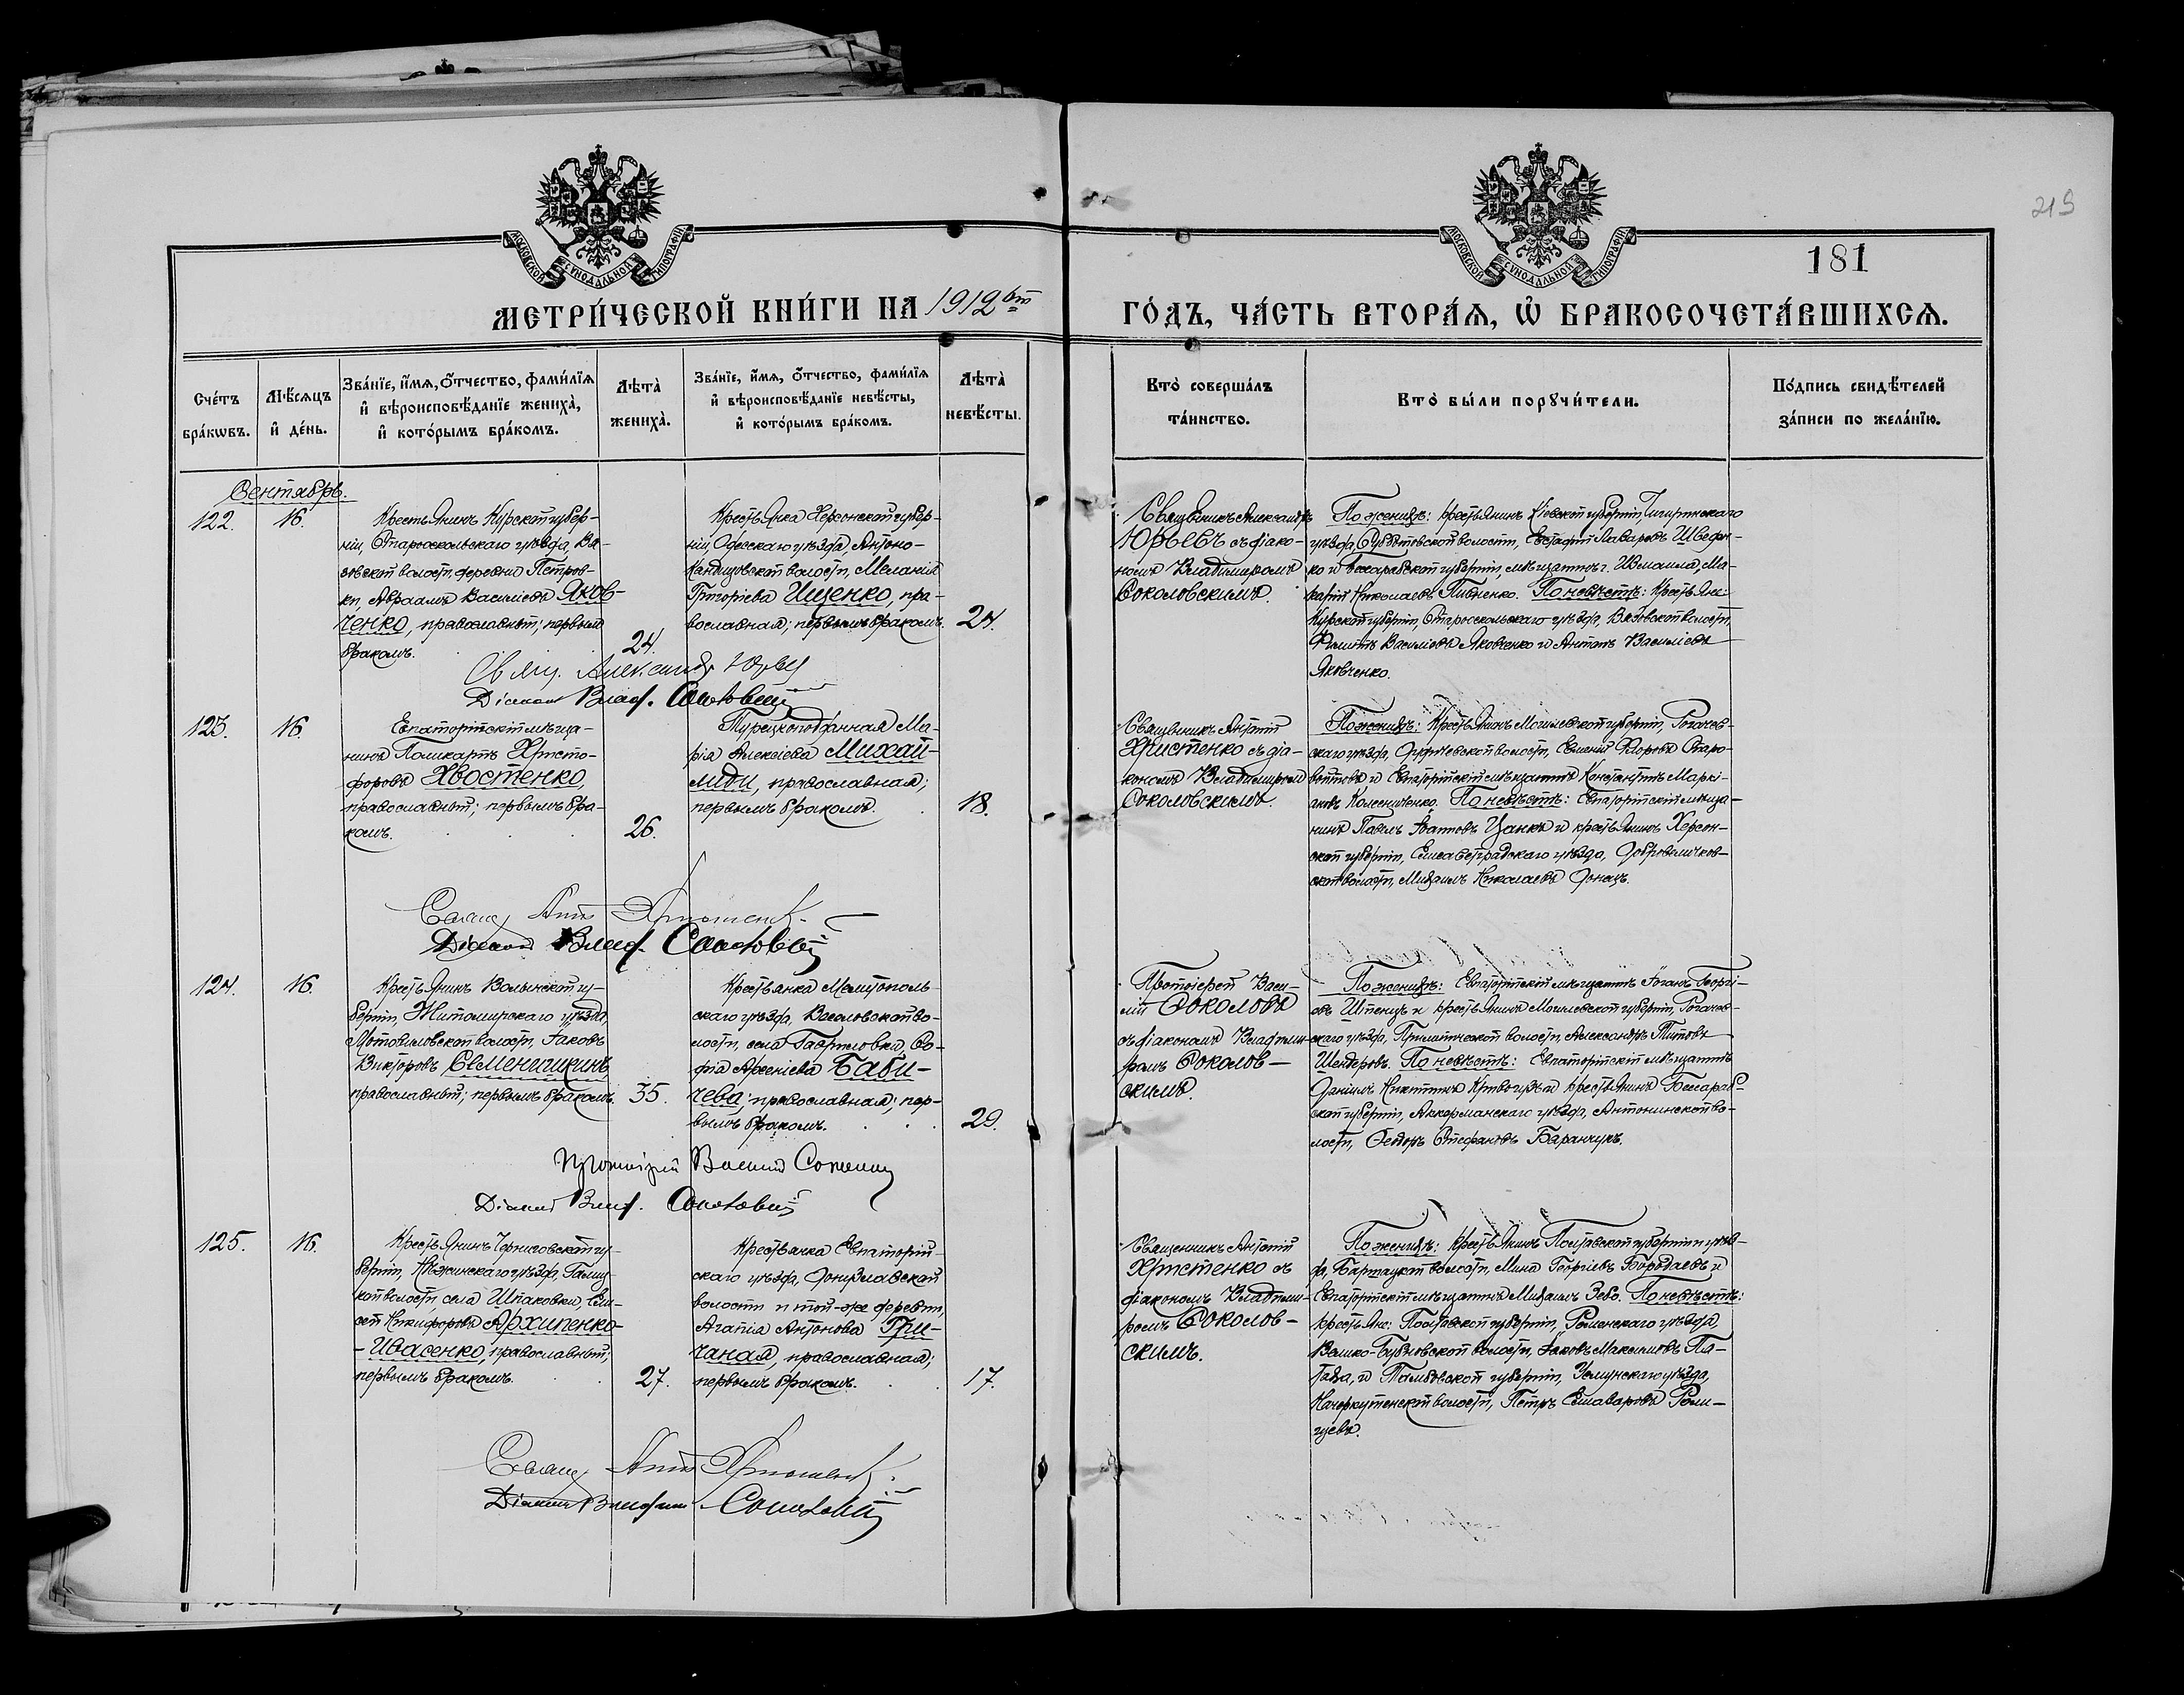 219
МОСКОВСКОЙ СѴНОДАЛЬНОЙ ТИПОГРАФІИ
МОСКОВСКОЙ СѴНОДАЛЬНОЙ ТИПОГРАФІИ
181
МЕТРИ́ЧЕСКОЙ КНИ́ГИ НА 1912 ый
ГО́ДЪ, ЧА́СТЬ ВТОРА́Ѧ, Ѡ҆ БРАКОСОЧЕТА́ВШИХСѦ.
Сче́тъ бра́кѡвъ.
Мѣ́сѧцъ и҆ де́нь.
Зва́нїе, и҆́мѧ, ѻ҆́тчество, фами́лїѧ и҆ вѣроисповѣ́данїе жениха̀, и҆ кото́рымъ бра́комъ.
Лѣта̀ жениха̀.
Зва́нїе, и҆́мѧ, ѻ҆́тчество, фами́лїѧ и҆ вѣроисповѣ́данїе невѣ́сты, и҆ кото́рымъ бра́комъ.
Лѣта̀ невѣ́сты.
Кто̀ соверша́лъ та́инство.
Кто̀ бы́ли порꙋчи́тели.
По́дпись свидѣ́телей за́писи по жела́нїю.
Сентябрь.
122.
16.
Крестьянинъ Курской губер-
ніи, Старооскольскаго уѣзда, Вя-
зовской волости, деревни Петров-
ки, Авраамъ Василіевъ Яков-
ченко, православный; первымъ
бракомъ.
24.
Крестьянка Херсонской губер-
ніи, Одесскаго уѣзда, Антоно-
Кандизовской волости, Меланія
Григоріева Ищенко, пра-
вославная; первымъ бракомъ.
24.
Священникъ Александръ
Юрьевъ съ діако-
номъ Владимиромъ
Соколовскимъ.
По женихѣ: крестьянинъ Кіевской губерніи, Чигиринскаго
уѣзда, Субботовской волости, Евстафій Лазаревъ Шведен-
ко и Бессарабской губерніи, мѣщанинъ г. Измаила, Ма-
карій Николаевъ Пивненко. По невѣстѣ: крестьяне:
Курской губерніи, Старооскольскаго уѣзда, Вязовской волости,
Филиппъ Василіевъ Яковченко и Антонъ Василіевъ
Яковченко.
Свящ. Александръ Юрьевъ
Діаконъ Влад. Соколовскій
123.
16.
Евпаторійскій мѣща-
нинъ Поликарпъ Христо-
форовъ Хвостенко,
православный; первымъ бра-
комъ.
26.
Турецкоподданная Ма-
рія Алексіева Михай-
лиди, православная;
первымъ бракомъ.
18.
Священникъ Антоній
Христенко съ діа-
кономъ Владимиромъ
Соколовскимъ.
По женихѣ: Крестьянинъ Могилевской губерніи, Рогачев-
скаго уѣзда, волости, Евменій Ѳлоровъ Старо-
войтовъ и Евпаторійскій мѣщанинъ Константинъ Маркі-
ановъ Колесниченко. По невѣстѣ: Евпаторійскій мѣща-
нинъ Павелъ Іоанновъ Цанко и крестьянинъ Херсон-
ской губерніи, Елисаветградскаго уѣзда, Добровеличков-
ской волости, Михаилъ Николаевъ Донецъ.
Свящ. Антоній Христенко
Діаконъ Влад. Соколовскій
124.
16.
Крестьянинъ Волынской гу-
берніи, Житомирскаго уѣзда,
Мотовиловской волости, Іаковъ
Викторовъ Семенишкинъ
православный; первымъ бракомъ.
35.
Крестьянка Мелитополь-
скаго уѣзда, Веселовской во-
лости, села Гавриловки, Со-
фія Арсеніева Баби-
чева; православная; пер-
вымъ бракомъ.
29.
Протоіерей Васи-
лій Соколовъ
съ діакономъ Владими-
ромъ Соколов-
скимъ.
По женихѣ: Евпаторійскій мѣщанинъ Іоганъ Георгі-
евъ Штенцъ и крестьянинъ Могилевской губерніи, Рогачев-
скаго уѣзда, волости, Александръ Титовъ
Шендеровъ. По невѣстѣ: Евпаторійскій мѣщанинъ
Даніилъ Никитинъ и крестьянинъ Бессараб-
ской губерніи, Аккерманскаго уѣзда, Антонинской во-
лости, Ѳеодоръ Стефановъ Баранчукъ.
Протоіерей Василій Соколовъ
Діаконъ Влад. Соколовскій
125.
16.
Крестьянинъ Черниговской гу-
берніи, Нѣжинскаго уѣзда, Галиц-
кой волости, села Шпаковки, Ели-
сей Никифоровъ Архипенко-
-Ивасенко, православный;
первымъ бракомъ.
27.
Крестьянка Евпаторій-
скаго уѣзда, Донузлавской
волости и той-же деревни,
Агапія Антонова Гри-
чаная, православная;
первымъ бракомъ.
17.
Священникъ Антоній
Христенко съ
діакономъ Владими-
ромъ Соколов-
скимъ.
По женихѣ: Крестьянинъ Полтавской губерніи и уѣз-
да, волости, Мина Георгіевъ Бородаевъ и
Евпаторійскій мѣщанинъ Михаилъ Зебо. По невѣстѣ:
крестьяне: Полтавской губерніи, Роменскаго уѣзда,
Велико-Бубновской волости, Іаковъ Максимовъ Па-
и Тамбовской губерніи, Усманскаго уѣзда,
волости, Петръ
Свящ. Антоній Христенко
Діаконъ Владимиръ Соколовскій